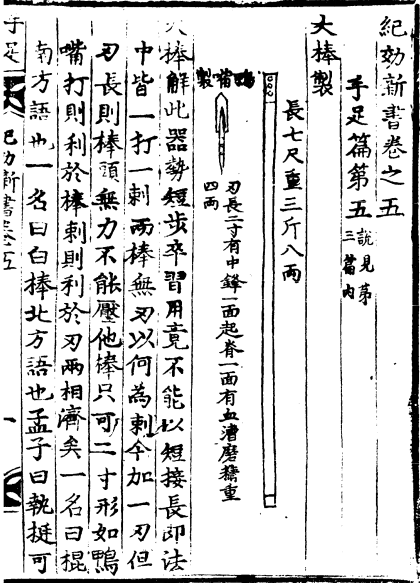 紀効新書卷之五
手足篇第五 說見第三篇内
大棒製
長七尺重三斤八兩
鴨嘴製
刃長二寸有中鋒一面起脊一面有血漕磨精重
四兩
大棒解此器勢短步卒習用竟不能以短接長即法
中皆一打一刺兩棒無刃以何為刺今加一刃但
刃長則棒頭無力不能壓他棒只可二寸形如鴨
嘴打則利於棒刺則利於刃兩相濟矣一名曰棍
南方語也一名曰白棒北方語也孟子曰執挺可
手足
紀効新書卷五
一